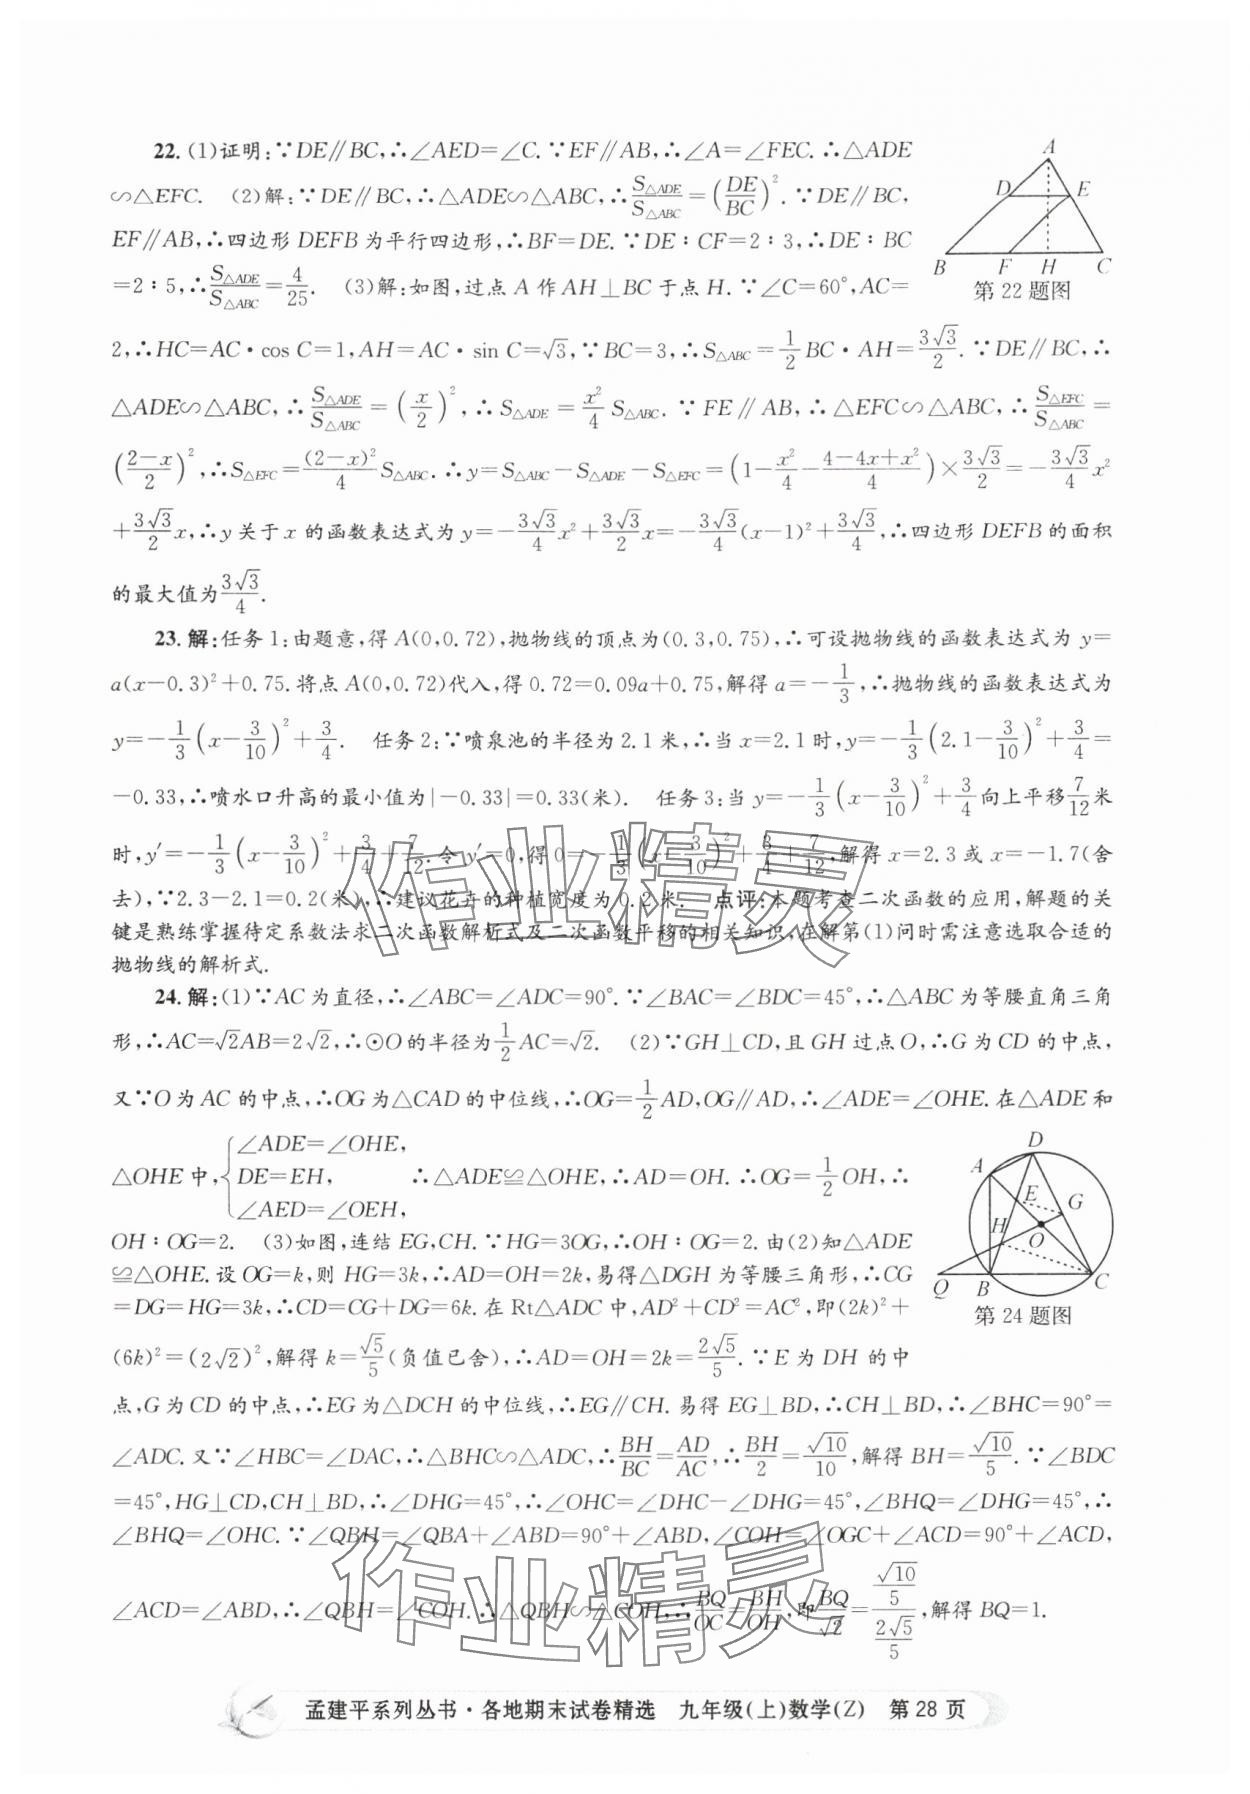 22. (1)证明:∵DE∥BC,∴∠AED=∠C.∵EF∥AB,∴∠A=∠FEC.∴△ADE
∽△EFC. (2)解:∵DE∥BC,∴△ADE∽△ABC,∴S△ADE/S△ABC=(DE/BC)². ∵DE∥BC,
EF∥AB,∴四边形 DEFB 为平行四边形,∴BF=DE.∵DE∶CF=2∶3,∴DE∶BC
=2∶5,∴S△ADE/S△ABC=4/25. (3)解:如图,过点 A 作 AH⊥BC 于点 H.∵∠C=60°,AC=
2,∴HC=AC·cos C=1,AH=AC·sin C=√3,∵BC=3,∴S△ABC=1/2 BC·AH=3√3/2.∵DE∥BC,∴
△ADE∽△ABC,∴S△ADE/S△ABC=(x/2)²,∴S△ADE=x²/4 S△ABC. ∵FE∥AB,∴△EFC∽△ABC,∴S△EFC/S△ABC=
((2-x)/2)²,∴S△EFC=(2-x)²/4 S△ABC.∴y=S△ABC-S△ADE-S△EFC=(1-x²/4-(4-4x+x²)/4)×3√3/2=-3√3/4 x²
+3√3/2 x,∴y关于 x 的函数表达式为 y=-3√3/4 x²+3√3/2 x=-3√3/4(x-1)²+3√3/4,∴四边形 DEFB 的面积
的最大值为3√3/4.
23. 解:任务1:由题意,得 A(0,0.72),抛物线的顶点为(0.3,0.75),∴可设抛物线的函数表达式为 y=
a(x-0.3)²+0.75.将点 A(0,0.72)代入,得 0.72=0.09a+0.75,解得 a=-1/3,∴抛物线的函数表达式为
y=-1/3(x-3/10)²+3/4. 任务2:∵喷泉池的半径为2.1米,∴当 x=2.1时,y=-1/3(2.1-3/10)²+3/4=
-0.33,∴喷水口升高的最小值为|-0.33|=0.33(米). 任务3:当 y=-1/3(x-3/10)²+3/4向上平移7/12米
时,y′=-1/3(x-3/10)²+3/4+7/12.令 y′=0,得 0=-1/3(x-3/10)²+3/4+7/12,解得 x=2.3或 x=-1.7(舍
去),∵2.3-2.1=0.2(米),∴建议花卉的种植宽度为0.2米. 点评:本题考查二次函数的应用,解题的关
键是熟练掌握待定系数法求二次函数解析式及二次函数平移的相关知识,在解第(1)问时需注意选取合适的
抛物线的解析式.
24. 解:(1)∵AC 为直径,∴∠ABC=∠ADC=90°.∵∠BAC=∠BDC=45°,∴△ABC 为等腰直角三角
形,∴AC=√2AB=2√2,∴⊙O 的半径为1/2 AC=√2. (2)∵GH⊥CD,且 GH 过点 O,∴G 为 CD 的中点,
又∵O为 AC 的中点,∴OG为△CAD 的中位线,∴OG=1/2 AD,OG∥AD,∴∠ADE=∠OHE.在△ADE 和
△OHE 中,{∠ADE=∠OHE, DE=EH, ∠AED=∠OEH, ∴△ADE≌△OHE,∴AD=OH.∴OG=1/2 OH,∴
OH∶OG=2. (3)如图,连结 EG,CH.∵HG=3OG,∴OH∶OG=2.由(2)知△ADE
≌△OHE.设 OG=k,则 HG=3k,∴AD=OH=2k,易得△DGH 为等腰三角形,∴CG
=DG=HG=3k,∴CD=CG+DG=6k.在 Rt△ADC 中,AD²+CD²=AC²,即(2k)²+
(6k)²=(2√2)²,解得 k=√5/5(负值已舍),∴AD=OH=2k=2√5/5.∵E 为 DH 的中
点,G 为 CD 的中点,∴EG 为△DCH 的中位线,∴EG∥CH.易得 EG⊥BD,∴CH⊥BD,∴∠BHC=90°=
∠ADC.又∵∠HBC=∠DAC,∴△BHC∽△ADC,∴BH/BC=AD/AC,∴BH/2=√10/10,解得 BH=√10/5.∵∠BDC
=45°,HG⊥CD,CH⊥BD,∴∠DHG=45°,∴∠OHC=∠DHC-∠DHG=45°,∠BHQ=∠DHG=45°,∴
∠BHQ=∠OHC.∵∠QBH=∠QBA+∠ABD=90°+∠ABD,∠COH=∠OGC+∠ACD=90°+∠ACD,
∠ACD=∠ABD,∴∠QBH=∠COH.∴△QBH∽△COH,∴BQ/OC=BH/OH,即BQ/√2=(√10/5)/(2√5/5),解得 BQ=1.
A
D
E
B
F
H
C
第22题图
D
A
E
G
H
O
Q
B
C
第24题图
作业精灵
作业精灵
孟建平系列丛书·各地期末试卷精选 九年级(上)数学(Z) 第28页